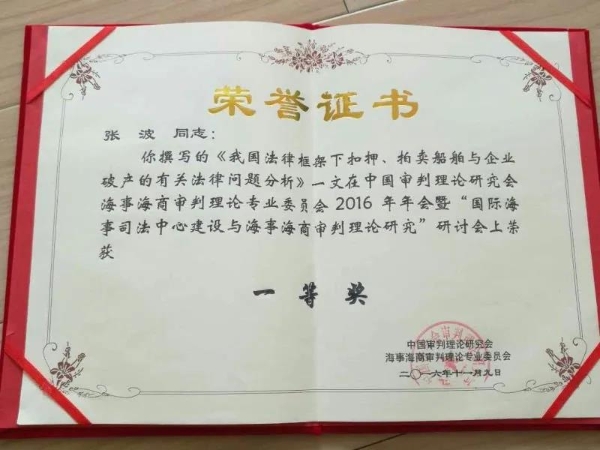 荣誉证书
张 波 同志：
你撰写的《我国法律框架下扣押、拍卖船舶与企业
破产的有关法律问题分析》一文在中国审判理论研究会
海事海商审判理论专业委员会2016年年会暨“国际海
事司法中心建设与海事海商审判理论研究”研讨会上荣
获
一等奖
中国审判理论研究会
海事海商审判理论专业委员会
二〇一六年十一月九日